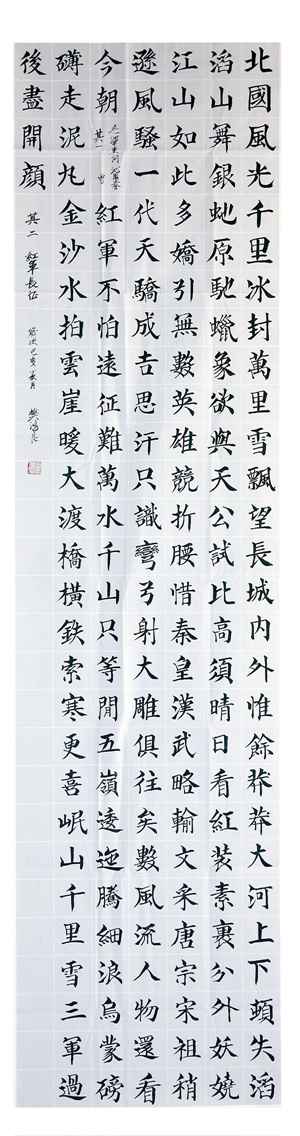 北國風光千里冰封萬里雪飄望長城内外惟餘莽莽大河上下頓失滔
滔山舞銀虵原馳蠟象欲與天公試比高須晴日看紅装素裹分外妖嬈
江山如此多嬌引無數英雄競折腰惜秦皇漢武略輸文采唐宗宋祖稍
遜風騷一代天驕成吉思汗只識彎弓射大雕俱往矣數風流人物還看
今朝 其一 雪 紅軍不怕遠征難萬水千山只等閒五嶺逶迤騰細浪烏蒙磅
礴走泥丸金沙水拍雲崖暖大渡橋橫鉄索寒更喜岷山千里雪三軍過
後盡開顔 其二 紅軍長征 歲次己亥